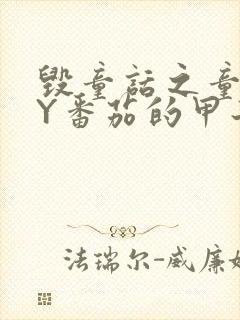 毁童话之童
Y番茄的甲
法瑞尔-威廉